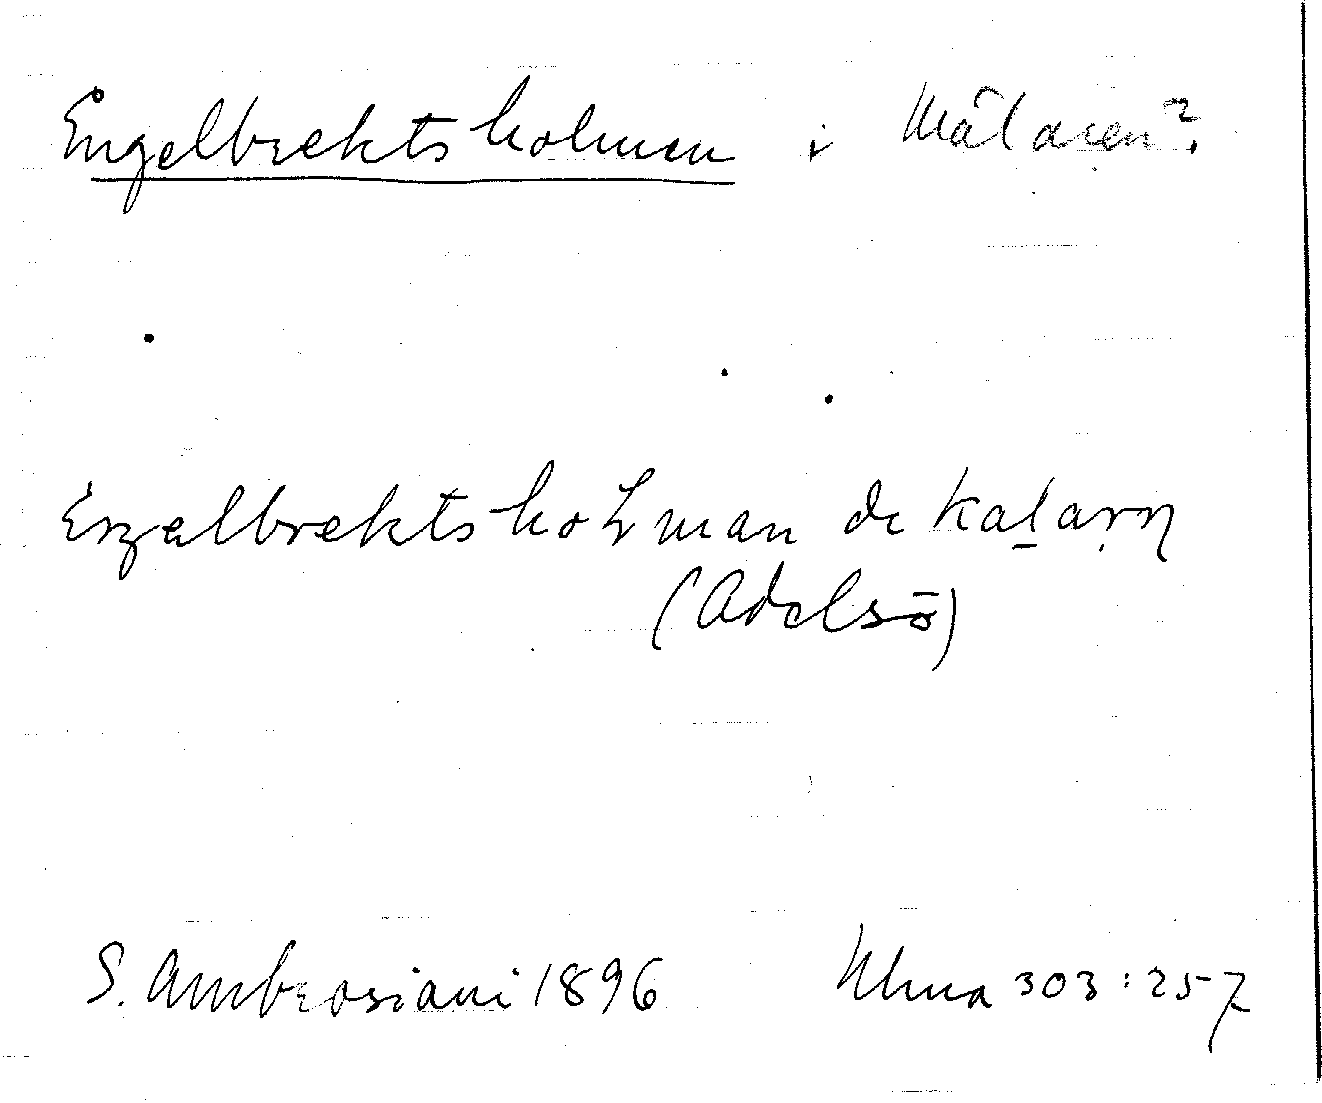 Engelbrektsholmen i Mälaren?
Eŋgelbrektshoɫman de kaḷaṛŋ
(Adelsö)
S. Ambrosiani 1896 Ulma 303:257